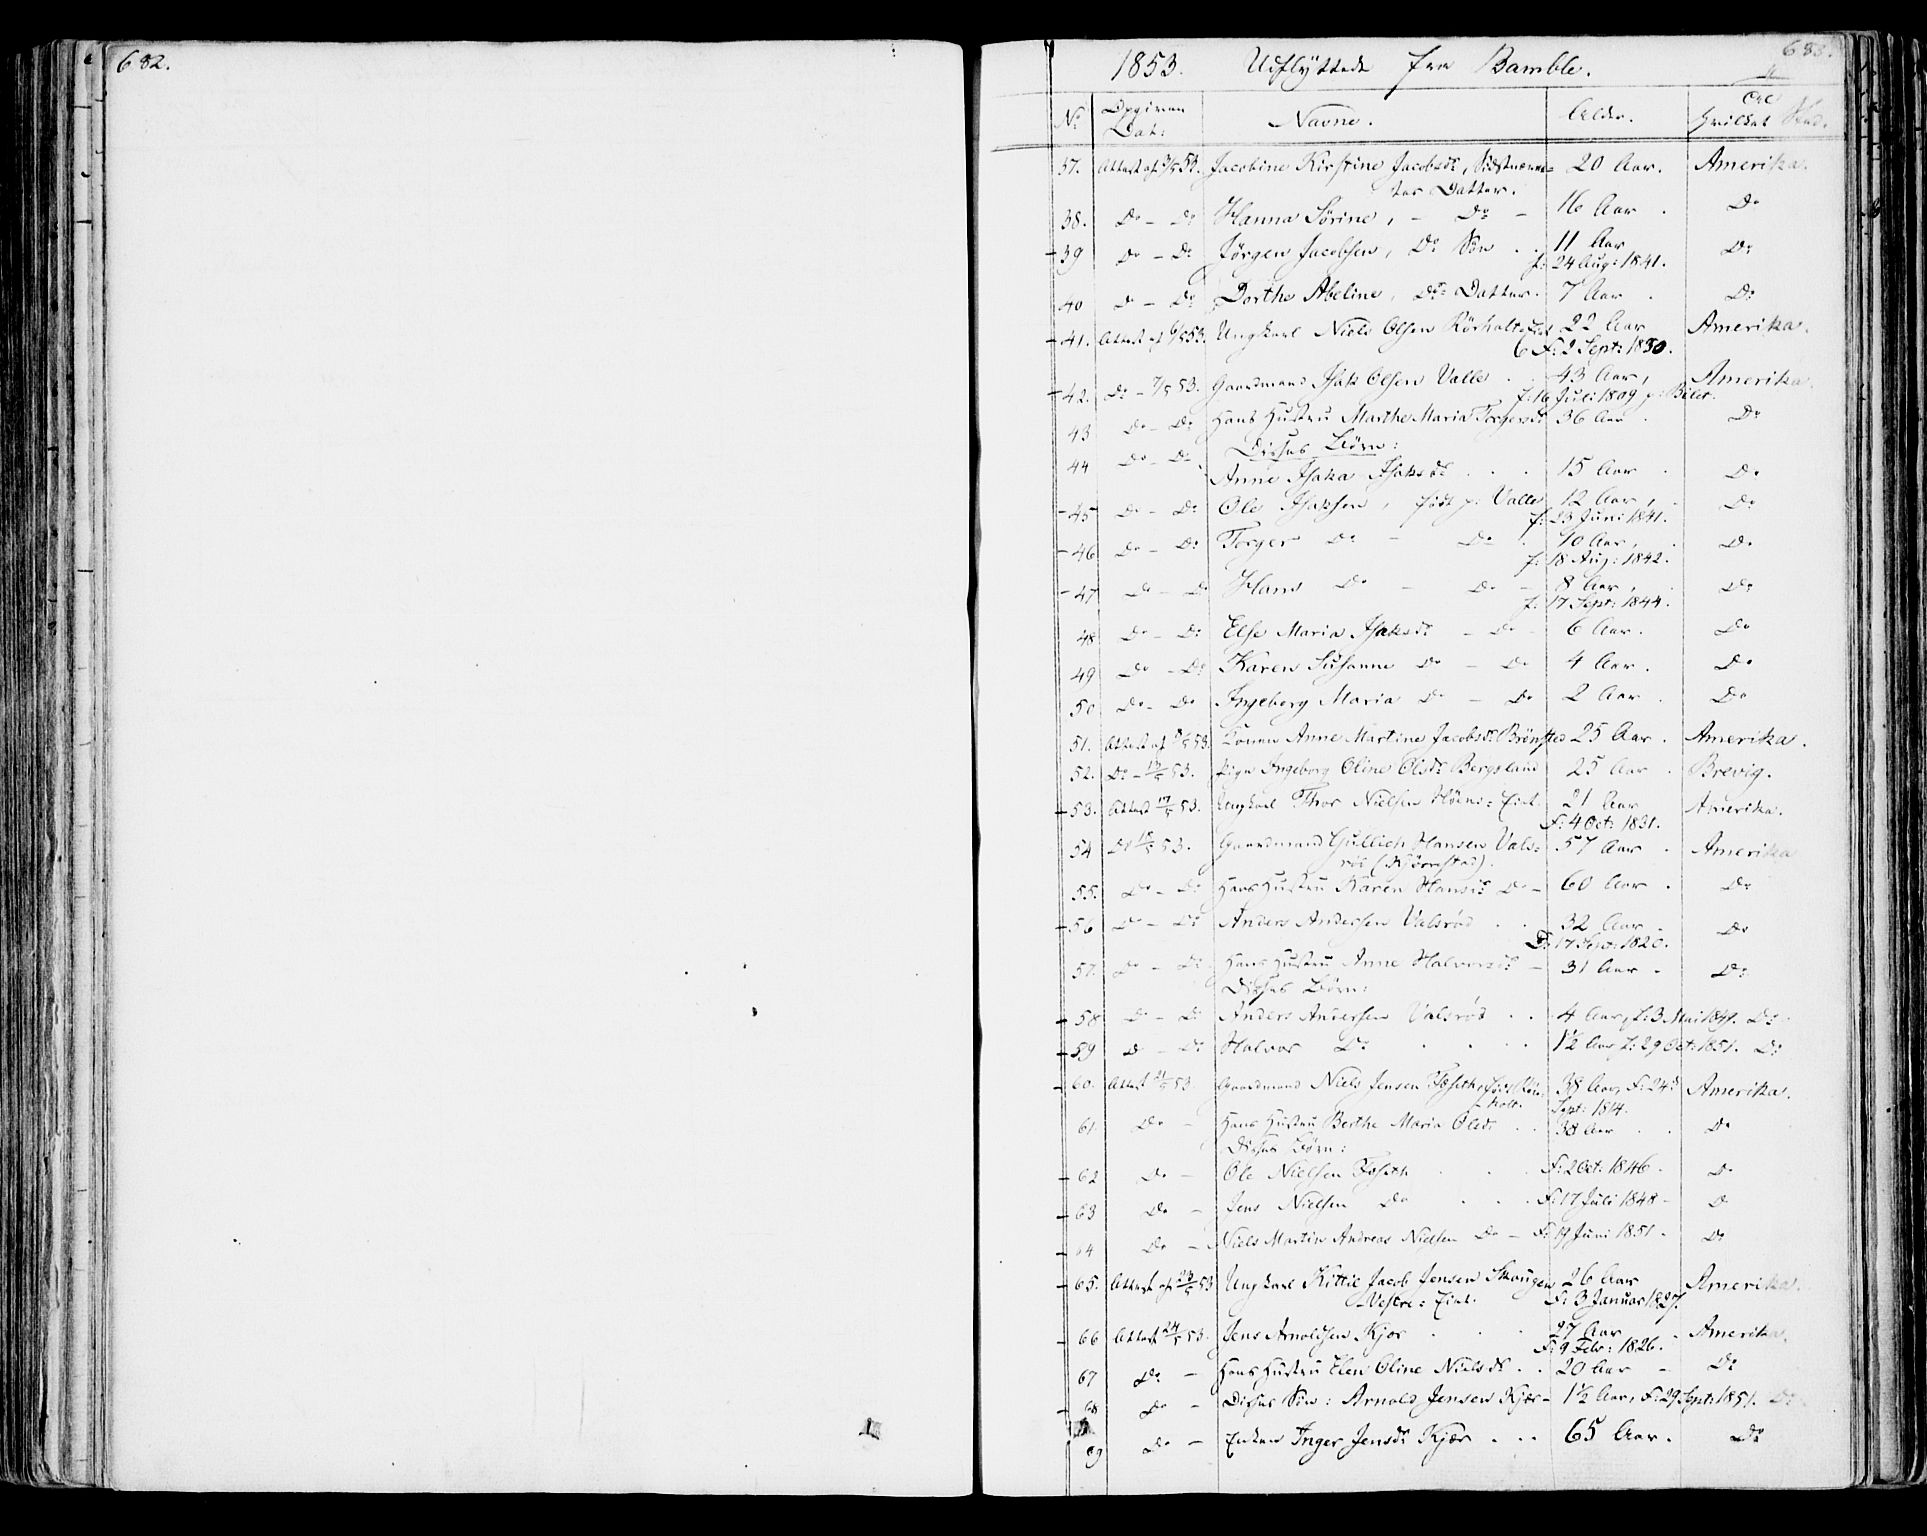 682.
683.
1853. Udflyttede fra Bamble.
No Opgiven Dat: Navne. Alder. Til hvilket Sted.
57. Attest af 3/5 53. Jacobine Kirstine Jacobsdr, Sidstnævn= 20 Aar. Amerika.
tes Datter.
38. Do - Do Hanna Sørine, - Do - 16 Aar. Do
39 Do - Do Jørgen Jacobsen, Ds Søn . . 11 Aar Do
f: 24 Aug: 1841.
40 Do - Do Dorthe Abeline, Ds Datter. 7 Aar . Do
41. Attest af 6/5 53. Ungkarl Niels Olsen Rörholt 22 Aar Amerika.
F: 2 Sept: 1830.
42. Do - 7/5 53. Gaardmand Isak Olsen Valle . 43 Aar, Amerika.
f: 16 Juli 1809 p:
43 Do - Do Hans Hustru Marthe Maria Torgersdr 36 Aar . Do
Disses Börn:
44 Do - Do Anne Isaka Isaksdr . . . 15 Aar . Do
45 Do - Do Ole Isaksen, født p: Valle 12 Aar, Do
f: 23 Juni 1841.
46 Do - Do Torger Do - Do . 10 Aar, . Do
f: 18 Aug: 1842.
47 Do - Do Hans Do - Do - 8 Aar, . Do
f: 17 Sept: 1844.
48 Do - Do Else Maria Isaksdr - Do - 6 Aar. Do
49 Do - Do Karen Susanne Do - Do 4 Aar. Do
50 Do - Do Ingeborg Maria Do - Do 2 Aar . Do
51. Attest af 8/5 53. Konen Anne Martine Jacobsdr Brönsted 25 Aar . Amerika.
52. Do - 13/5 53. Pige Ingeborg Oline Olsdr Bergsland 25 Aar . Brevig.
53. Attest 17/5 53. Ungkarl Thor Nielsen Höen: Eiet. 21 Aar Amerika.
F: 4 Oct: 1831.
54 Do 18/5 53. Gaardmand Gullich Hansen Vals= 57 Aar . Amerika
röd (Kjørrestad).
55. Do - Do Hans Hustru Karen Hansdr Do - 60 Aar . Do
56 Do - Do Anders Andersen Valsrød . . 32 Aar - Do
F: 17 1820.
57. Do - Do Hans Hustru Anne Halvorsdr - 31 Aar - Do
Disses Börn:
58 Do - Do Anders Andersen Valsrød . . 4 Aar, f: 3 Mai 1849. Do
59 Do - Do Halvor Do . . . . 1½ Aar f: 29 Oct: 1851. Do
60. Attest 21/5 53. Gaardmand Niels Jensen Foseth, født Rör= 38 Aar, F: 24de Amerika.
holt. Sept: 1814.
61 Do - Hans Hustru Berthe Maria Olsdr . . 38 Aar . . Do
Disses Börn:
62 Do - Ole Nielsen Foseth . . . F: 2 Oct: 1846. Do
63 Do - Jens Nielsen Do . . . F: 17 Juli 1848 - Do
64 Do - Niels Martin Andreas Nielsen Do - F: 19 Juni 1851. Do
65. Attest af 23/5 53 Ungkarl Kittil Jacob Jensen Skougen 26 Aar Amerika.
Vestre: Eiet. F: 3 Januar 1827.
66 Attest 24/5 53. Jens Arnoldsen Kjær . . . 27 Aar . Amerika.
F: 9 Febr: 1826.
67 Do - Hans Hustru Elen Oline Nielsdr . . 20 Aar - Do
68 Do - Disses Sön: Arnold Jensen Kjær - 1½ Aar, F: 29 Sept: 1851. Do
69 Do - Enken Inger Jensdr Kjær . . . 65 Aar. Do